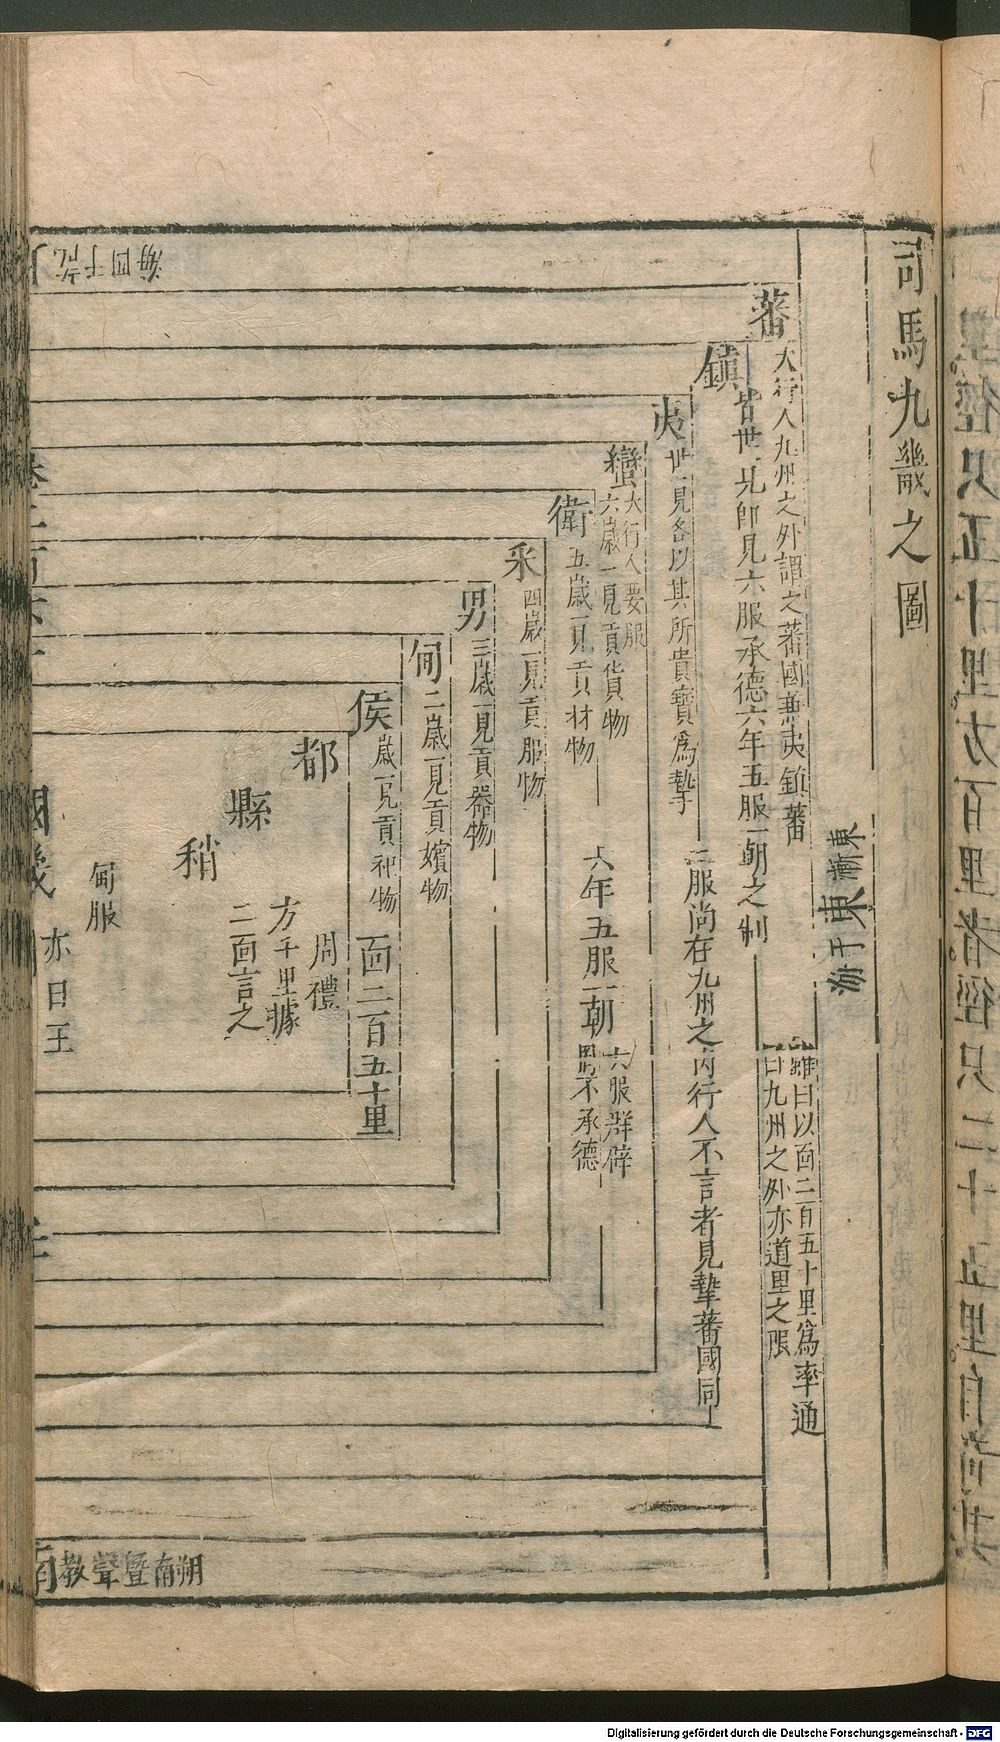 司馬九畿之圖
東漸
東
于海
蕃
大行人九州之外謂之蕃國兼夷鎮蕃
雖曰以面二百五十里為率通
曰九州之外亦道里之限
鎮
皆世一見即見六服承德六年五服一朝之制
夷
世一見各以其所貴寶為摯
二服尚在九州之內行人不言者見摯蕃國同
蠻
大行人要服
六歲一見貢貨物
六年五服一朝
六服群辟
罔不承德
衛
五歲一見貢材物
采
四歲一見貢服物
男
三歲一見貢器物
甸
二歲一見貢嬪物
侯
歲一見貢祀物
面二百五十里
都
周禮
方千里據
二面言之
縣
稍
甸服
亦曰王
國畿
訖于四海
朔南暨聲教
南
Digitalisierung gefördert durch die Deutsche Forschungsgemeinschaft - DFG